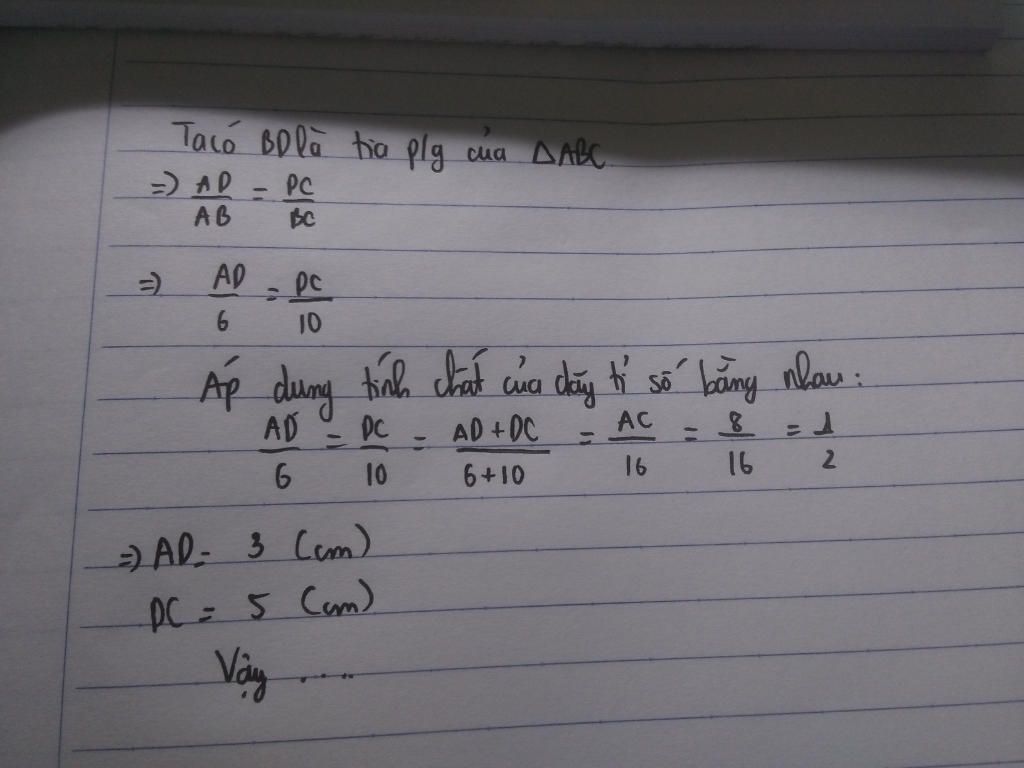 Ta có BD là tia p/g của ΔABC
=> AD/AB = DC/BC
=> AD/6 = DC/10
Áp dung tính chất của dãy tỉ số bằng nhau:
AD/6 = DC/10 = AD+DC/6+10 = AC/16 = 8/16 = 1/2
=> AD = 3 (cm)
DC = 5 (cm)
Vậy ....